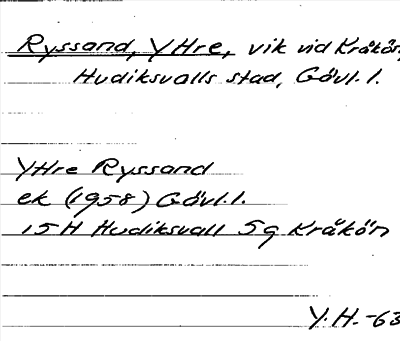 Ryssand, YHre, vik vid Kråkön,
Hudiksvalls stad, Gävl. l.
YHre Ryssand
ek (1958) Gävl. l.
15H Hudiksvall 5g Kråkön
Y. H. -63